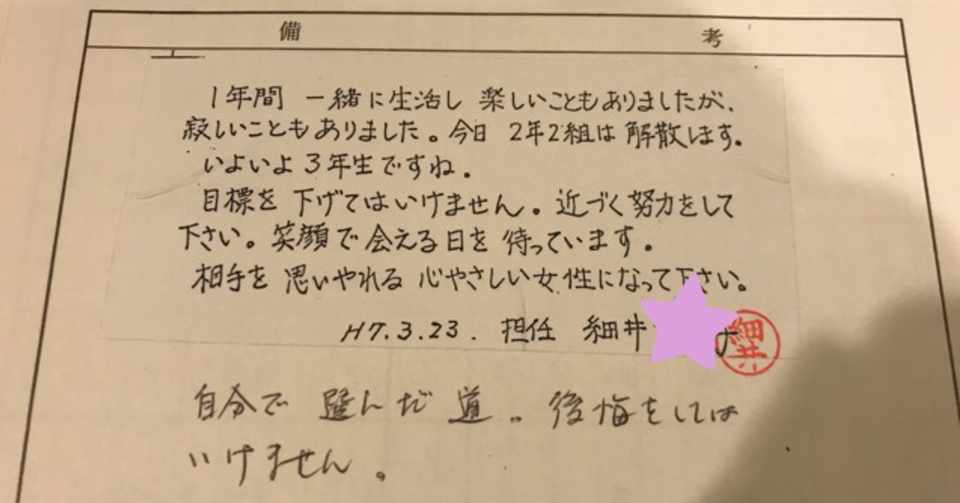 備考
1年間 一緒に生活し 楽しいこともありましたが、
寂しいこともありました。今日 2年2組は 解散します。
いよいよ3年生ですね。
目標を 下げてはいけません。近づく努力をして
下さい。笑顔で会える日を 待っています。
相手を 思いやれる 心やさしい女性になって下さい。
H7.3.23. 担任 細井
細井
自分で 選んだ 道。後悔をしては
いけません。